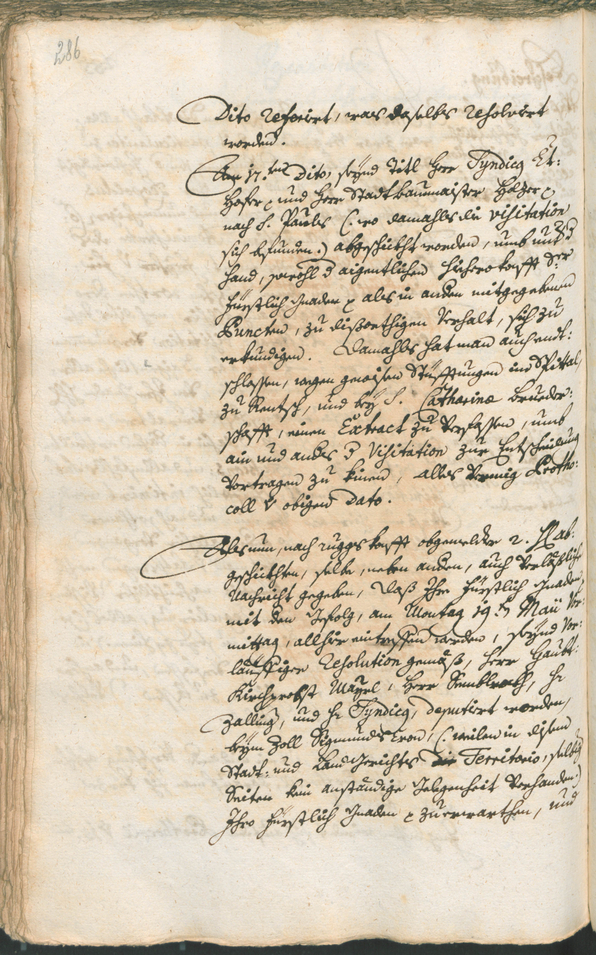 286
Dito referirt, was daselbs resolvirt
worden.
Den 17.ten Dito, seynd Titl Herr Syndicg Et:
hofer und Herr Stadtbaumaister Holzer
nach S. Pauls (: wo damahls die Visitation
sich befunden :) abgeschickht worden, umb
hand, sowohl aigentlichen hieherokonfft Sr
Fürstlich Gnaden als in anden mitgegebenen
Puncten, zu dißorthigen Verhalt, sich zu
erkundigen. Damahls hat man auch endt:
schlossen, wegen gewisen Stüfftungen im Spittal,
zu Rentsch, und bey S. Catharina Brueder:
schafft, einen Extract zu verfassen, umb
ain und anders d Visitation zur Entscheidung
vortragen zu kinen, alles vermig Protho:
coll obigen Dato.
Als nun, nach ruggkhonfft obgemeldter 2. H. ab:
geschickhten, selbe, neben anden, auch verläßliche
Nachricht gegeben, daß Ihro Fürstlich Gnaden
mit den Gefolg, am Montag 19.t Maii Vor:
mittag, allhier eintreffen werden, seynd vor:
läuffigen Resolution gemäß, Herr Haubt:
Kirchprobst Mayrl, Herr , H.
Zallinger, und H. Syndicg, deputirt worden,
beym Zoll Sigmundscron, (: weilen in disem
Stadt: und Landgerichts Territorio, selbig
Seiten kein anständige Gelegenheit verhanden :)
Ihro Fürstlich Gnaden zu erwarthen, und